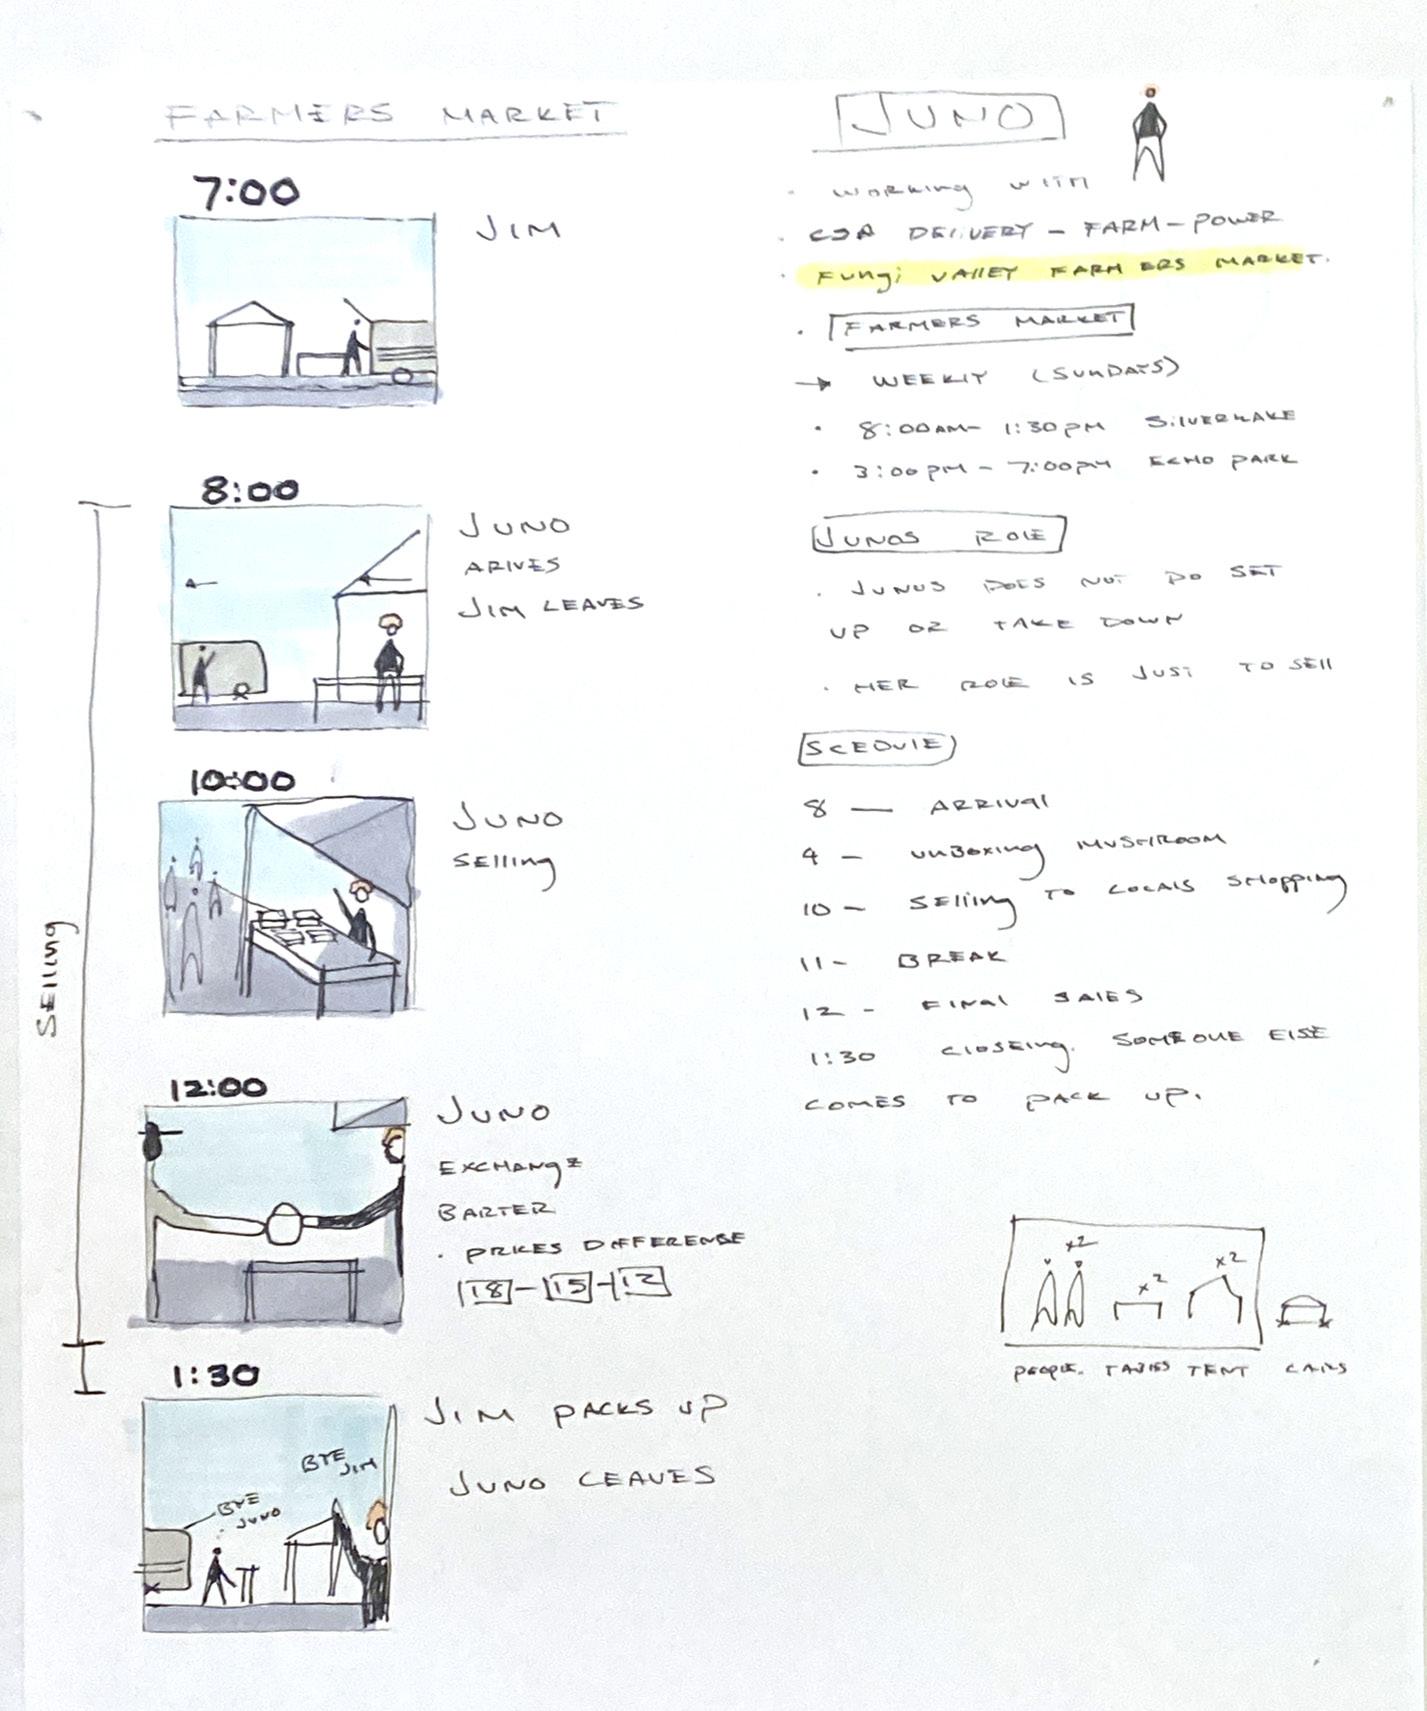 FARMERS MARKET
7:00
JIM
8:00
JUNO
ARIVES
JIM LEAVES
10:00
JUNO
SELLING
12:00
JUNO
EXCHANGE
BARTER
· PRICES DIFFERENCE
18 - 15 - 12
1:30
JIM PACKS UP
JUNO LEAVES
BYE JIM
BYE JUNO
SELLING
JUNO
· WORKING WITH
· CSA DELIVERY - FARM-POWER
· FUNGI VALLEY FARMERS MARKET.
· FARMERS MARKET
→ WEEKLY (SUNDAYS)
· 8:00AM- 1:30PM SILVERLAKE
· 3:00PM - 7:00PM ECHO PARK
JUNOS ROLE
· JUNOS DOES NOT DO SET
UP OR TAKE DOWN
· HER ROLE IS JUST TO SELL
SCEDULE
8 — ARRIVAL
9 - UNBOXING MUSHROOM
10 - SELLING TO LOCALS SHOPPING
11- BREAK
12 - FINAL SALES
1:30 CLOSEING. SOMEONE ELSE
COMES TO PACK UP.
x2 x2 x2
PEOPLE. TABLES TENT CARS